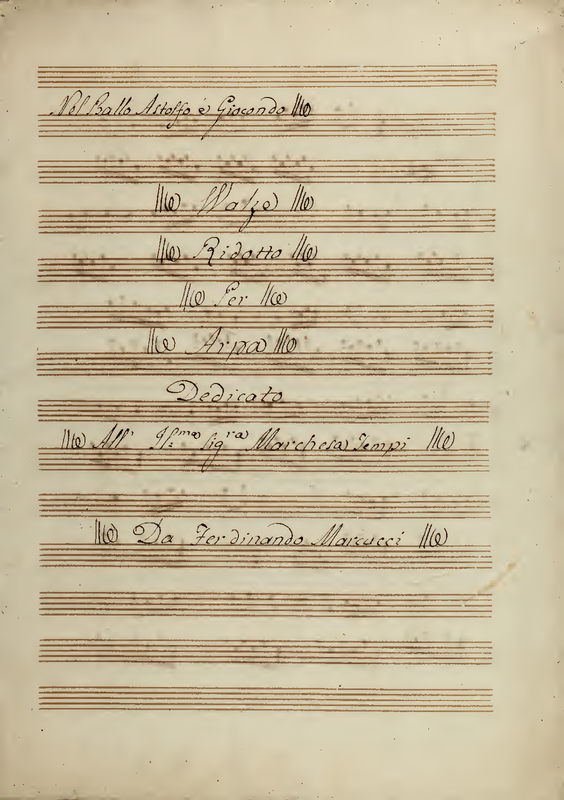 Nel Ballo Astolfo è Giocondo
Walze
Ridotto
Per
Arpa
Dedicato
All' Il:ma Sigra Marchesa Tempi
Da Ferdinando Marcucci